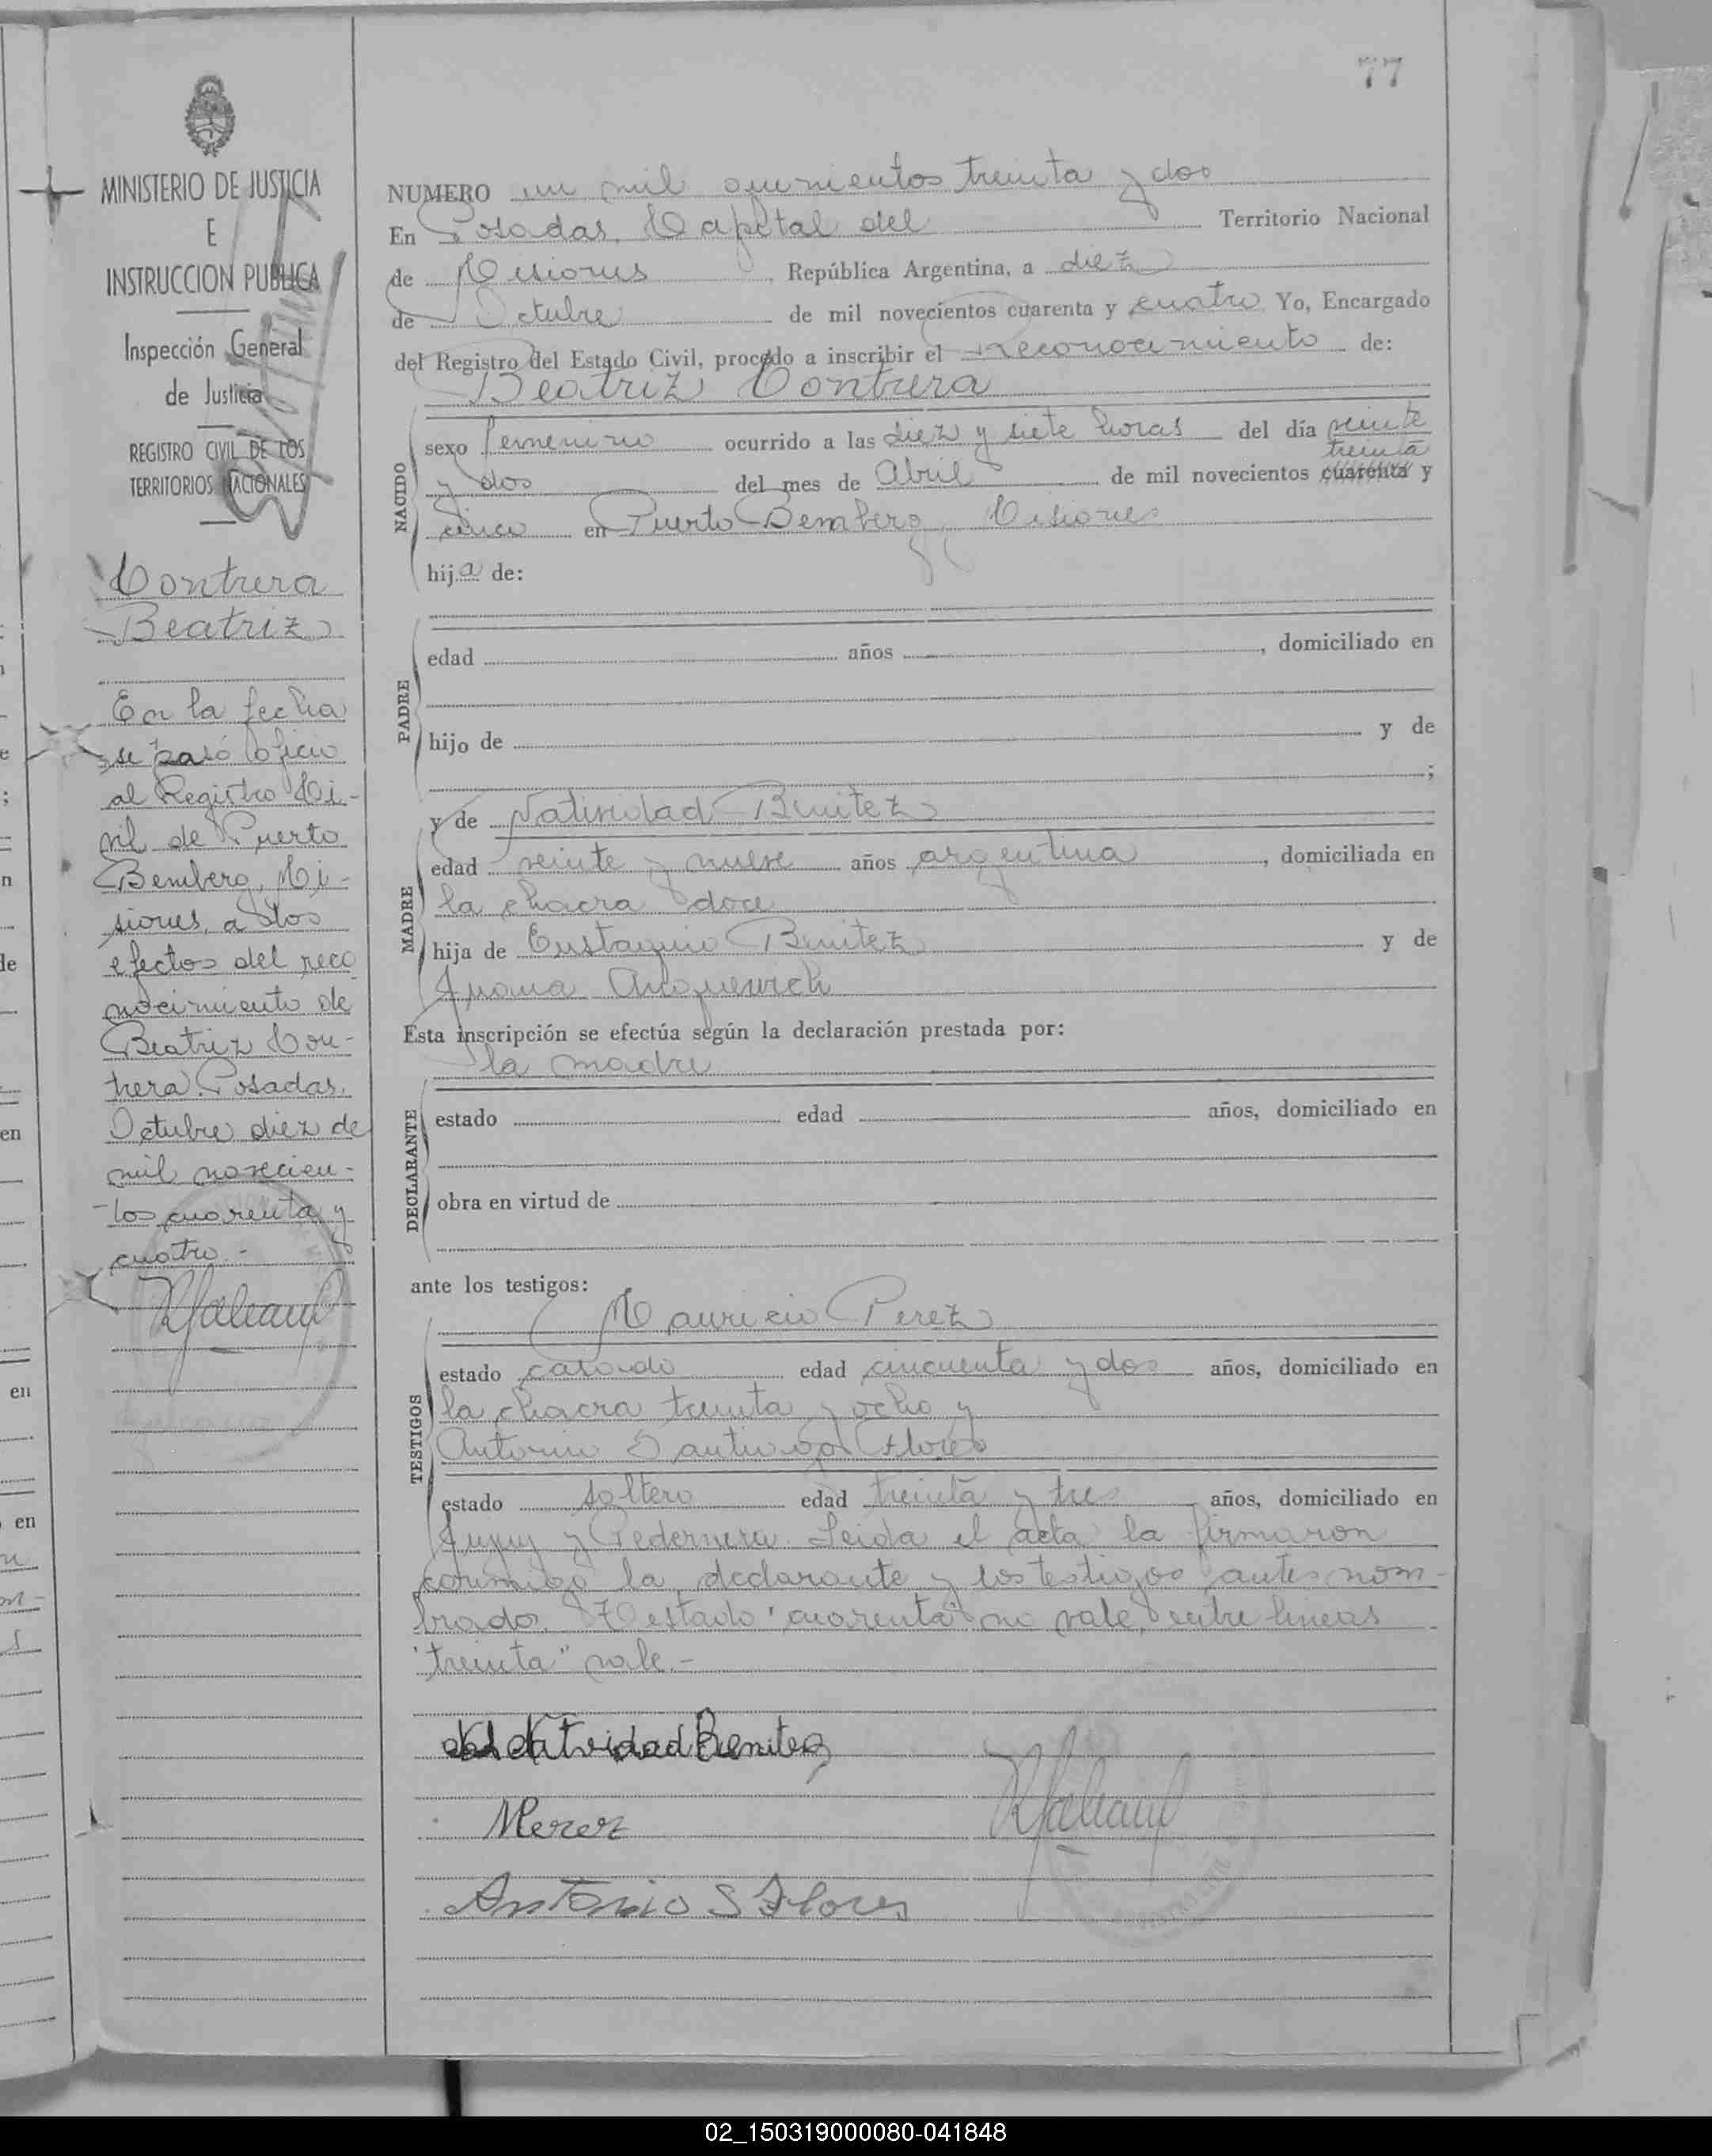 77
MINISTERIO DE JUSTICIA
E
INSTRUCCION PUBLICA
Inspección General
de Justicia
REGISTRO CIVIL DE LOS
TERRITORIOS NACIONALES
Contrera
Beatriz
En la fecha
se pasó oficio
al Registro Ci-
vil de Puerto
Bemberg, Mi-
siones, a los
efectos del reco
nocimiento de
Beatriz Con-
trera. Posadas.
Octubre diez de
mil novecien-
tos cuarenta y
cuatro.-
NUMERO un mil quinientos treinta y dos
En Posadas, Capital del Territorio Nacional
de Misiones, República Argentina, a diez
de Octubre de mil novecientos cuarenta y cuatro Yo, Encargado
del Registro del Estado Civil, procedo a inscribir el Reconocimiento de:
Beatriz Contrera
NACIDO
sexo femenino ocurrido a las diez y siete horas del día veinte
treinta
y dos del mes de Abril de mil novecientos cuarenta y
cinco en Puerto Bemberg, Misiones
hija de:
PADRE
edad años , domiciliado en
hijo de y de
;
MADRE
y de Natividad Benitez
edad veinte y nueve años argentina, domiciliada en
la chacra doce
hija de Eustaquio Benitez y de
Esta inscripción se efectúa según la declaración prestada por:
la madre
DECLARANTE
estado edad años, domiciliado en
obra en virtud de
ante los testigos:
TESTIGOS
Mauricio Perez
estado casado edad cincuenta y dos años, domiciliado en
la chacra treinta y ocho y
Antonio Santiago Flores
estado soltero edad treinta y tres años, domiciliado en
Jujuy y Pedernera. Leida el acta la firmaron
conmigo la declarante y los testigos antes nom-
brado. Testado "cuarenta" no vale, entre lineas
"treinta" vale.-
Natividad Benitez
MPerez
Antonio S Flores
02_150319000080-041848